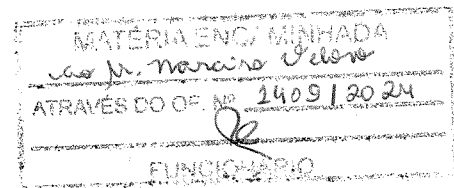 MATÉRIA ENCAMINHADA
ao Sr. Marciro Veloso
ATRAVÉS DO OF. Nº 1409/2024
FUNCIONÁRIO